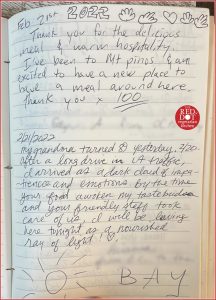 Feb 21st 2022
Thank you for the delicious
meal & warm hospitality.
I've been to Mt pinos & am
excited to have a new place to
have a meal around here,
thank you x 100
RED
DOT
2/21/2022
My grandma turned yesterday, 2/20.
After a long drive in LA traffic,
I arrived as a dark cloud of impa-
tience and emotions. By the time
your food awoken my tastebuds
and your friendly staff took
care of us, I will be leaving
here tonight as a nourished
ray of light!
BAY